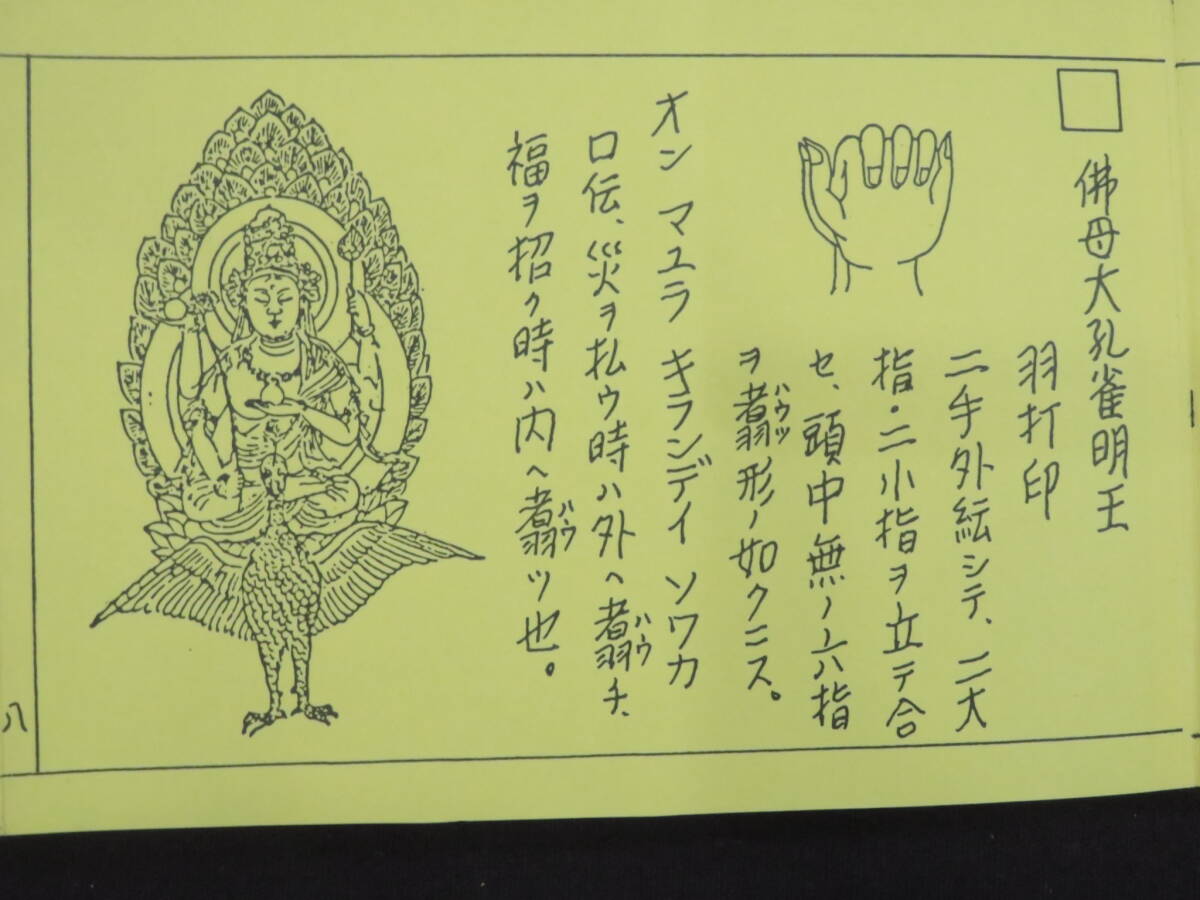 佛母大孔雀明王
羽打印
二手外紜シテ、二大
指・二小指ヲ立テ合
セ、頭中無ノ六指
ヲ翥ハウツ形ノ如クニス。
オン マユラ キランデイ ソワカ
口伝、災ヲ払ウ時ハ外ヘ翥ハウチ、
福ヲ招ク時ハ内ヘ翥ハウツ也。
八